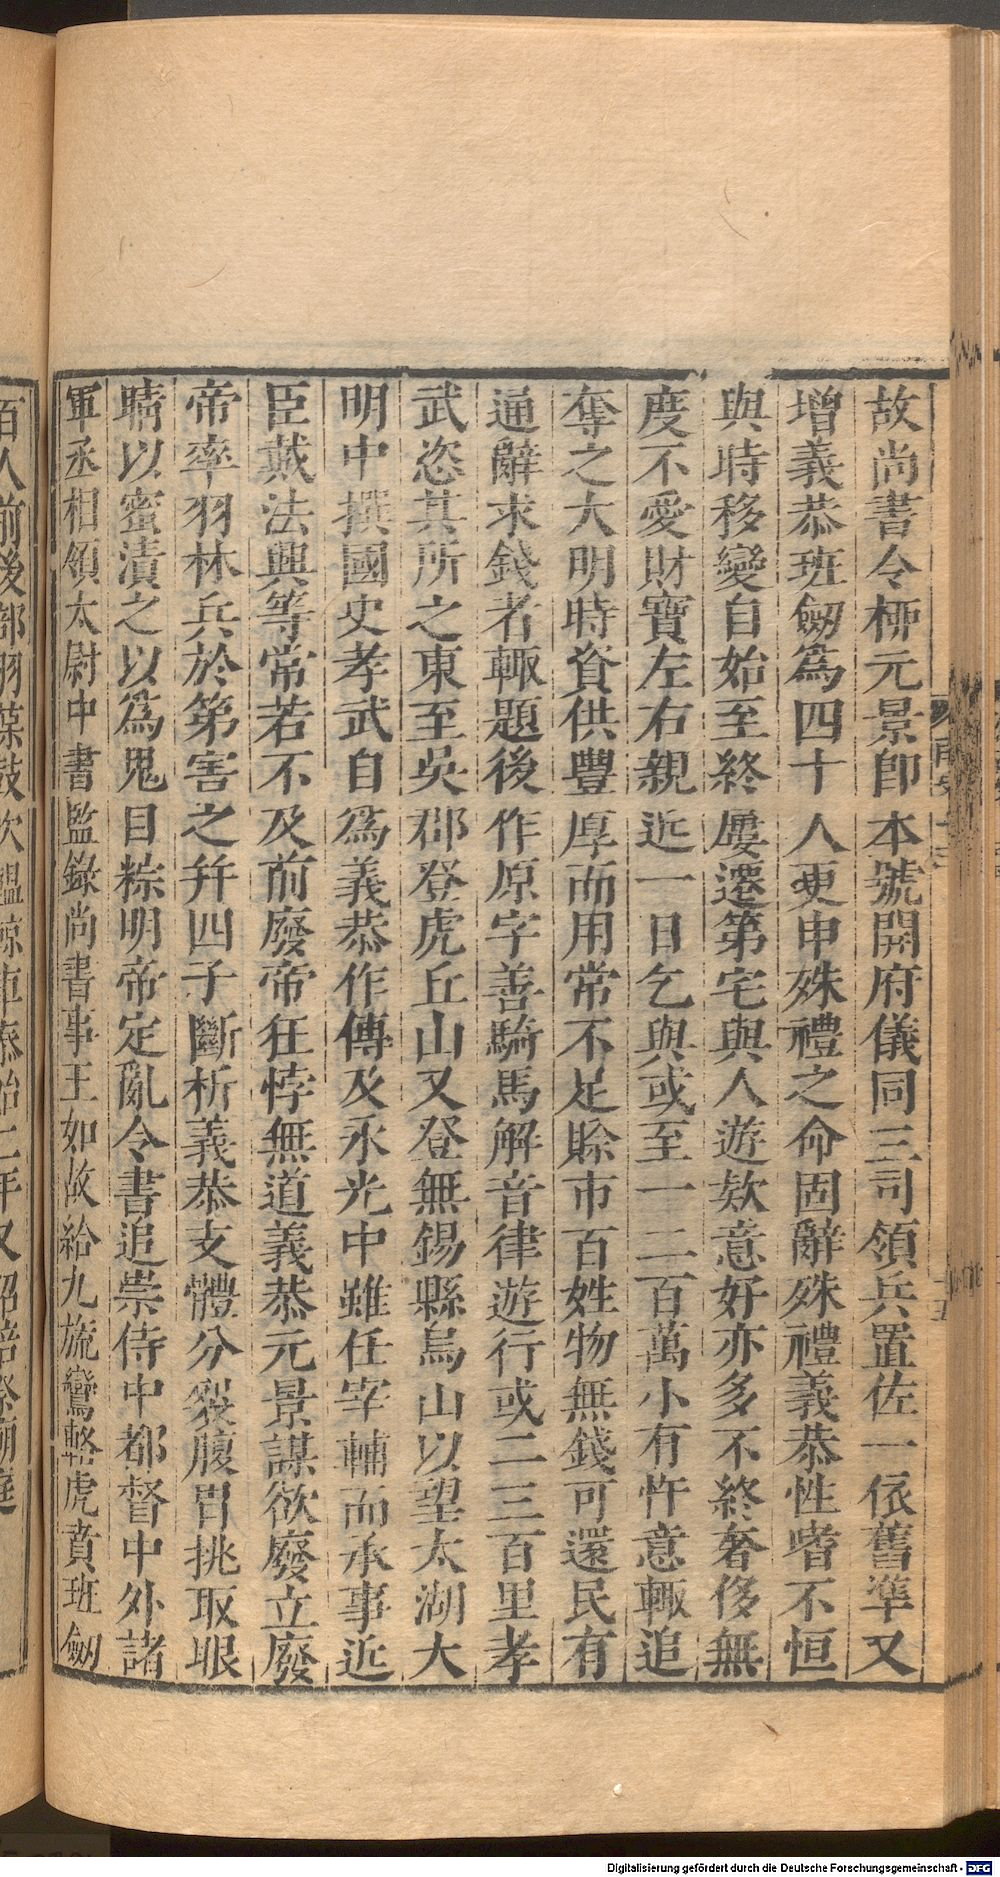 故尚書令栁元景卽本號開府儀同三司領兵置佐一依舊準又
增義恭班劒爲四十人更申殊禮之命固辭殊禮義恭性嗜不恒
與時移變自始至終屢遷第宅與人遊欵意好亦多不終奢侈無
度不愛財寶左右親近一日乞與或至一二百萬小有忤意輙追
奪之大明時資供豐厚而用常不足賖市百姓物無錢可還民有
通辭求錢者輙題後作原字善騎馬解音律遊行或二三百里孝
武恣其所之東至吳郡登虎丘山又登無錫縣烏山以望太湖大
明中撰國史孝武自爲義恭作傳及永光中雖任宰輔而承事近
臣戴法興等常若不及前廢帝狂悖無道義恭元景謀欲廢立廢
帝率羽林兵於第害之并四子斷析義恭支體分裂腹胃挑取眼
睛以蜜漬之以爲鬼目粽明帝定亂令書追崇侍中都督中外諸
軍丞相領太尉中書監錄尚書事王如故給九旒鸞輅虎賁班劒
百人前後部羽葆鼓吹轀輬車泰始二年又詔陪祭廟庭
Digitalisierung gefördert durch die Deutsche Forschungsgemeinschaft - DFG